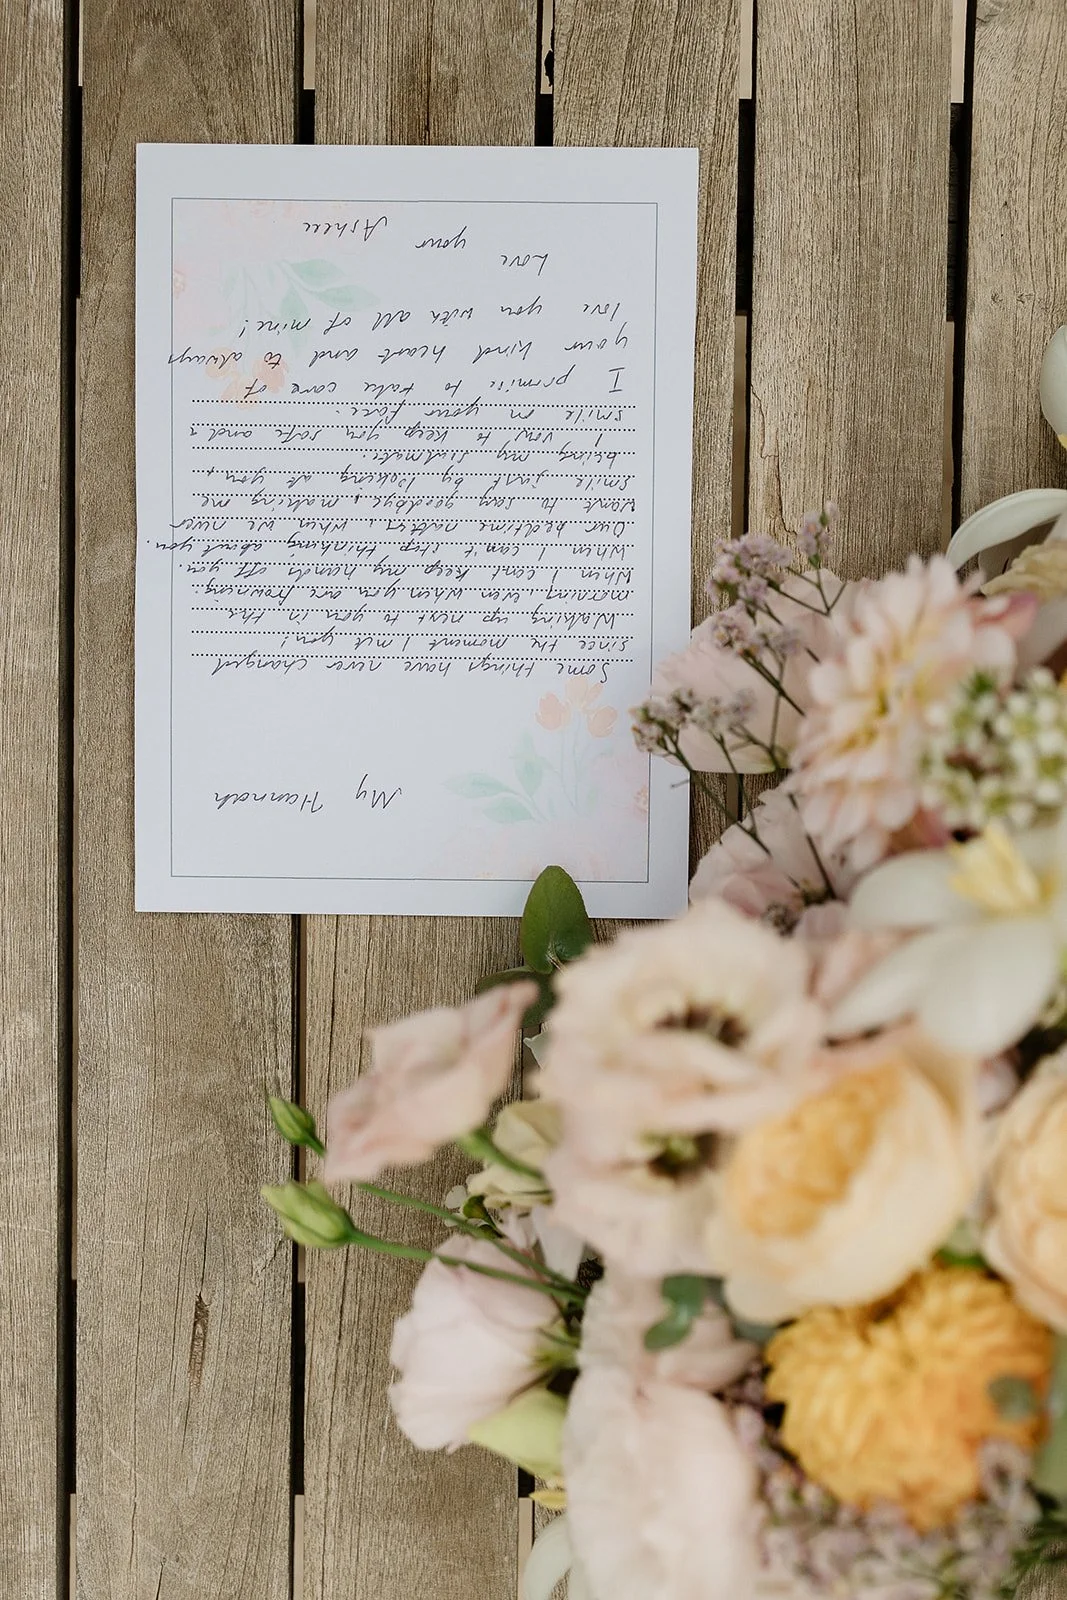 My Hannah
Some things have never changed
since the moment I met you!
Waking up next to you in the
morning even when you are frowning.
When I cant keep my hands off you.
When I can't stop thinking about you.
Our bedtime natters, when we never
want to say goodbye, making me
smile just by looking at you +
being my soulmate.
I vow to keep you safe and a
smile on your face.
I promise to take care of
your kind heart and to always
love you with all of mine!
Love
your